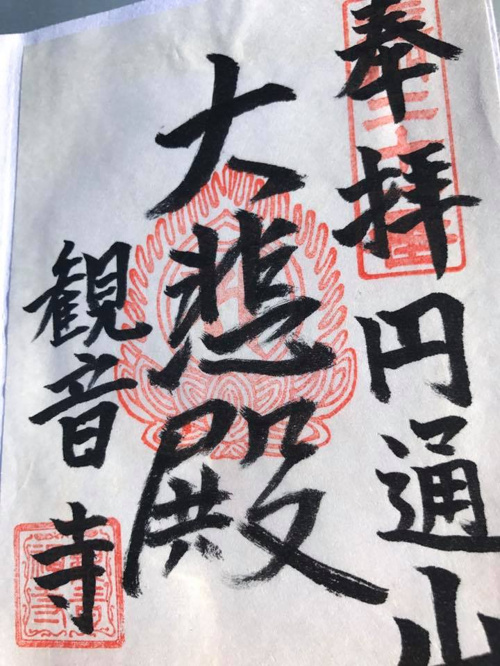 奉拝
円通山
大悲殿
観音寺